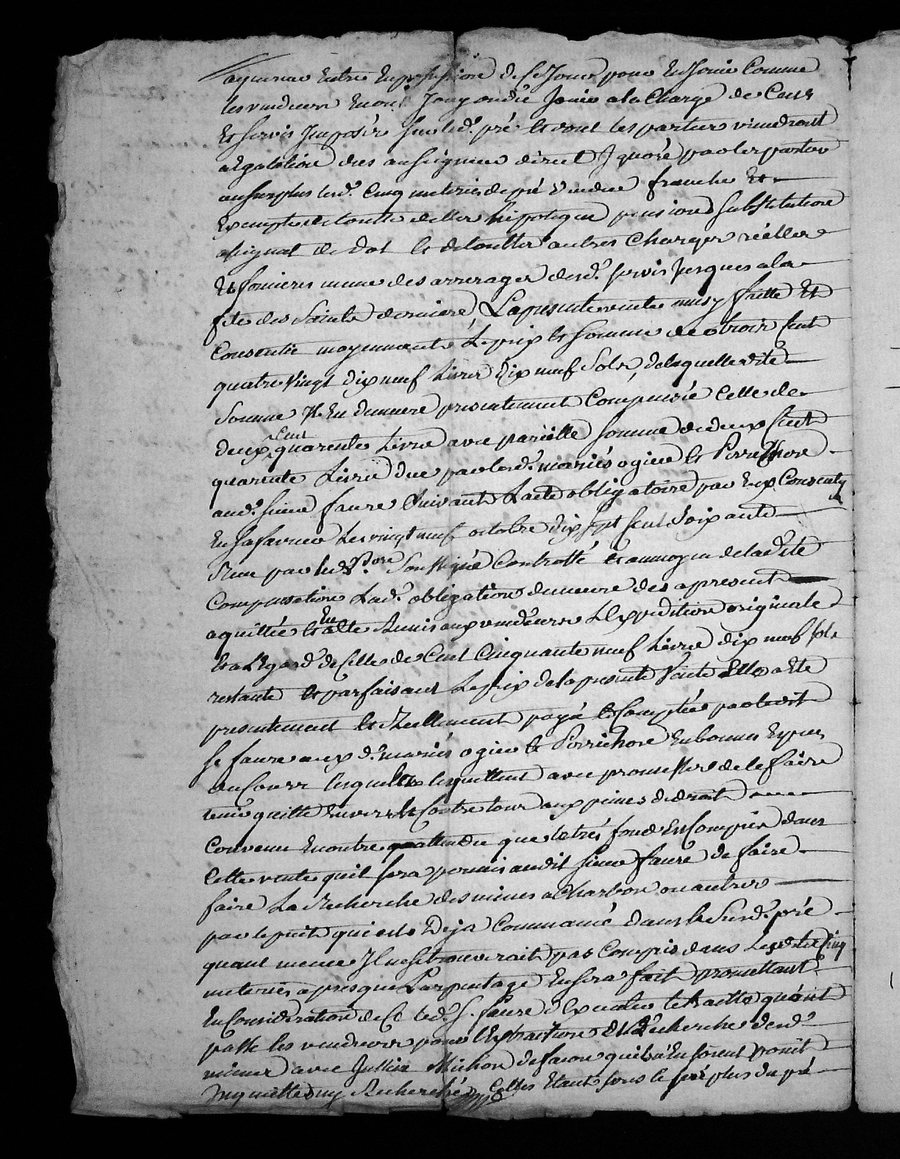 aquereur Entre En possession de ce Jour pour En Jouir Comme
les vendeurs En ont Jouy ou dû Jouir a la Charge de Cens
Et servis Imposés sur led. pré Et dont les parties viendront
a Egalation dus au seigneur direct Ignoré par les parties
au surplus led. Cinq meterées de pré vendue franche Et
Exempte de toutte dette hipoteque pension substitution
assignat de dot Et de touttes autres Charges réelles
Et foncieres meme des arrerages desd. servis Jusques a la
fete des Saints derniere, La presente vente ainsy faitte Et
Consentie moyennant Le prix Et somme de trois Cent
quatre Vingt dix neuf Livres dix neuf Sols, de laquelle dite
Somme Il En demeure presentement Compensée Celle de
deux Cent quarente Livre avec pareille somme de deux Cent
quarente Livre due par lesd. mariés ogier Et Perrichore
aud. sieur faure suivant L'acte obligatoire par Eux Consenty
En sa faveur Le vingt neuf octobre dix sept Cent soixante
Reçu par led. no.re soussigné Controllé Et au moyen de la dite
Compensation Lad. obligation demeure des a present
aquittée Et En a Eté Remis aux vendeurs L'Expedition originale
Et a L'Egard de Celle de Cent Cinquante neuf Livre dix neuf sols
restante Et parfaisant Le prix de la presente Vente Elle a Eté
presentement Et Reellement payé Et Comptée par ledit
Sr faure aux d. mariés ogier Et Perrichore En bonnes Espèces
au Cours lesquels l'En quittent avec promesse de le faire
tenir quitte Envers Et Contre tous aux peines de droit
Convenu En outre qu'attendu que le tres fond Est Compris dans
Cette vente qu'il sera permis audit sieur faure de faire
faire La Recherche des mines a Charbon ou autres
par le puit qui Est Deja Commancé dans le Susd. pré
quand meme Il ne se trouverait pas Compris dans lesdites Cinq
meterées apres que L'arpentage En sera fait promettant
En Consideration de Ce led. Sr. faure d'Executer le traitté qu'ont
passé les vendeurs pour l'Extraction Et Recherche desd.
mines avec Jullien Michon de facon qu'ils n'En soient point
Inquiettés ny Recherchés, Celles Etant sous le Sr plus du pré